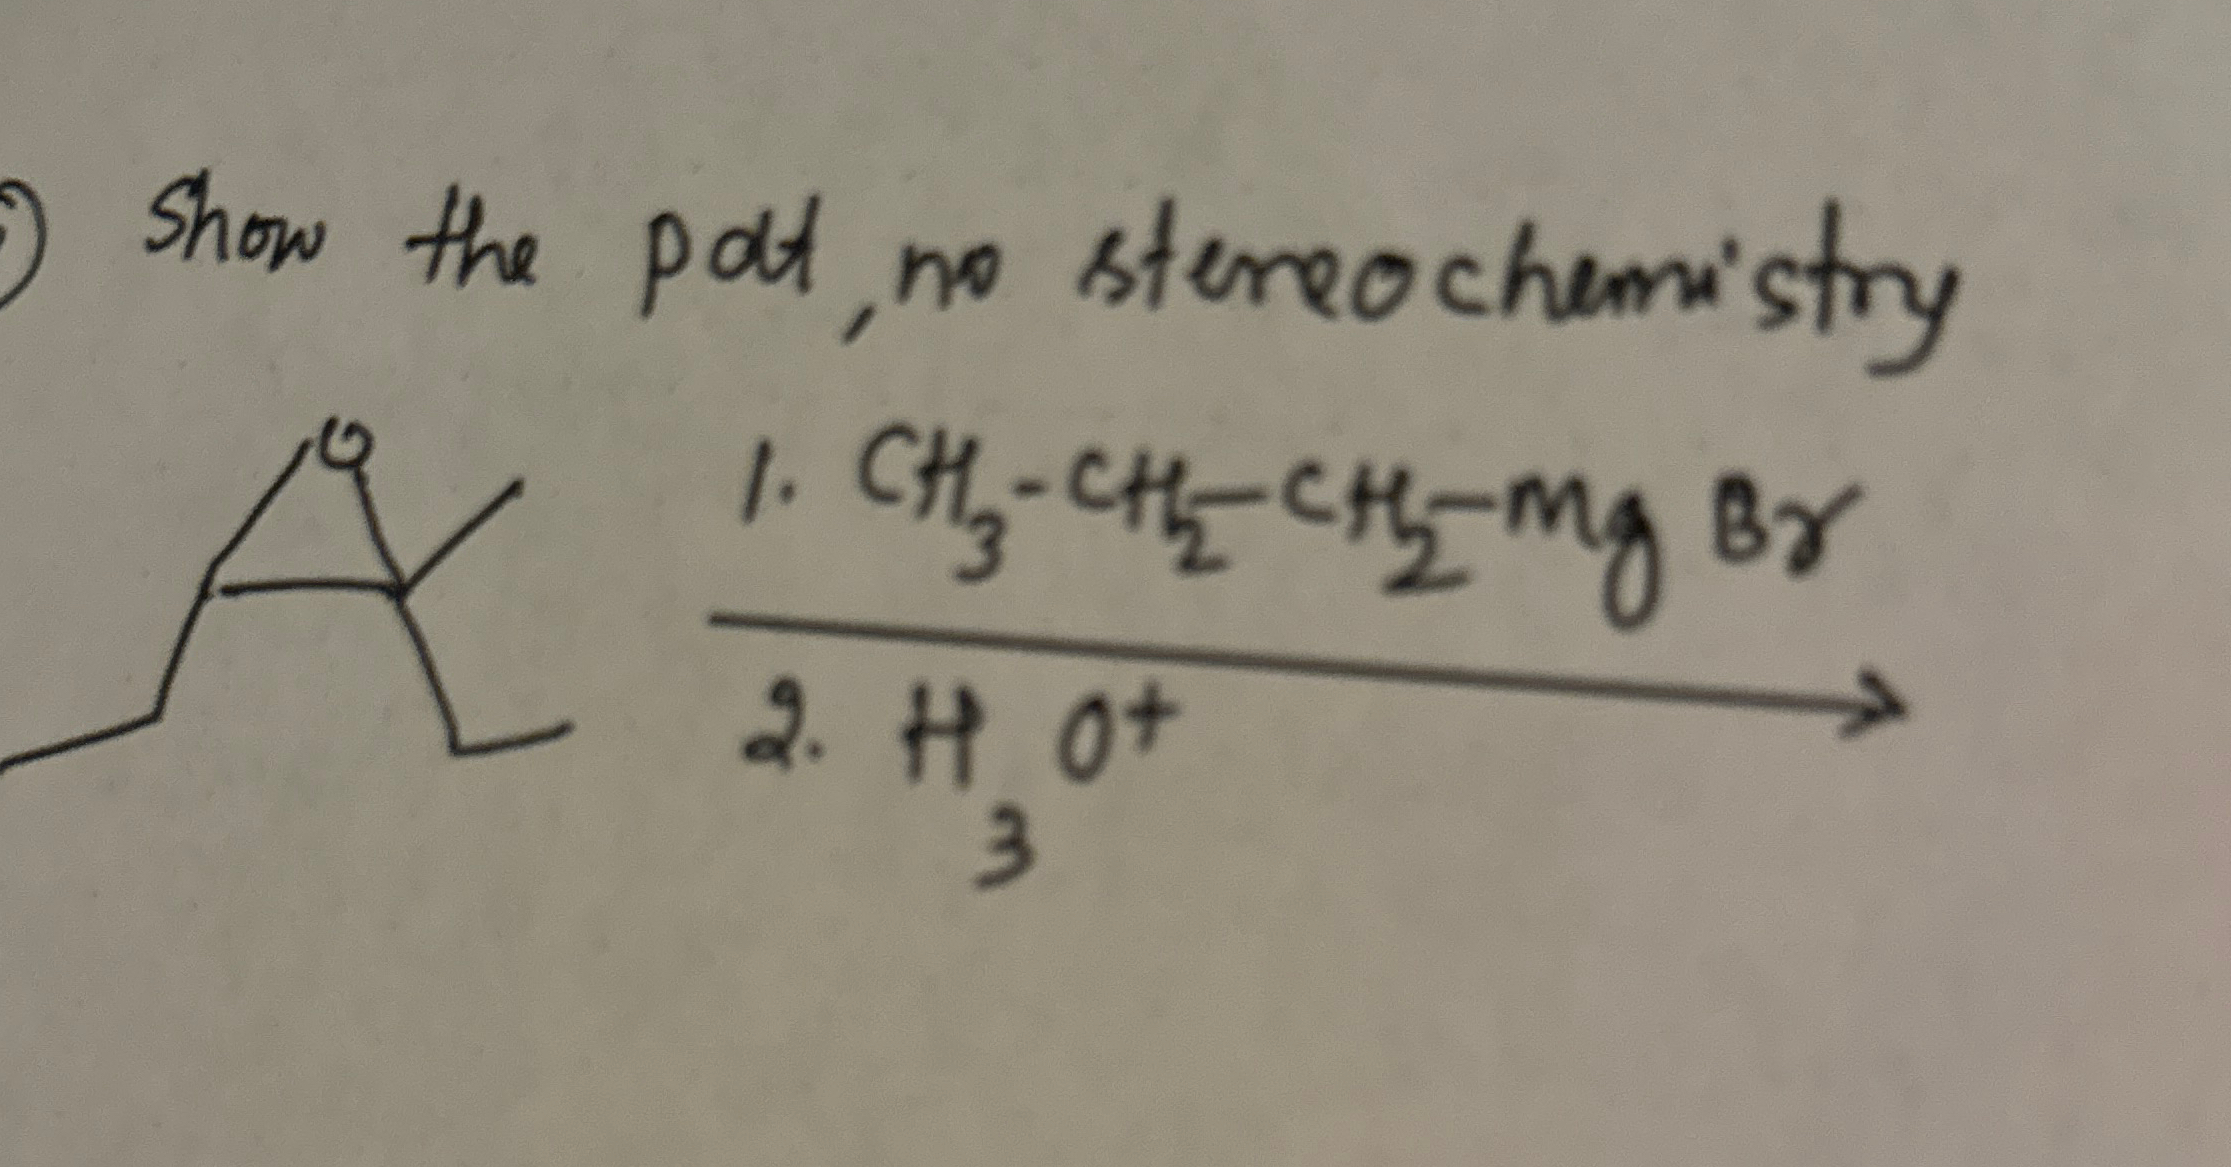 Show the pdt, no stereochemistry
O
1. CH3-CH2-CH2-Mg Br
2. H3O+